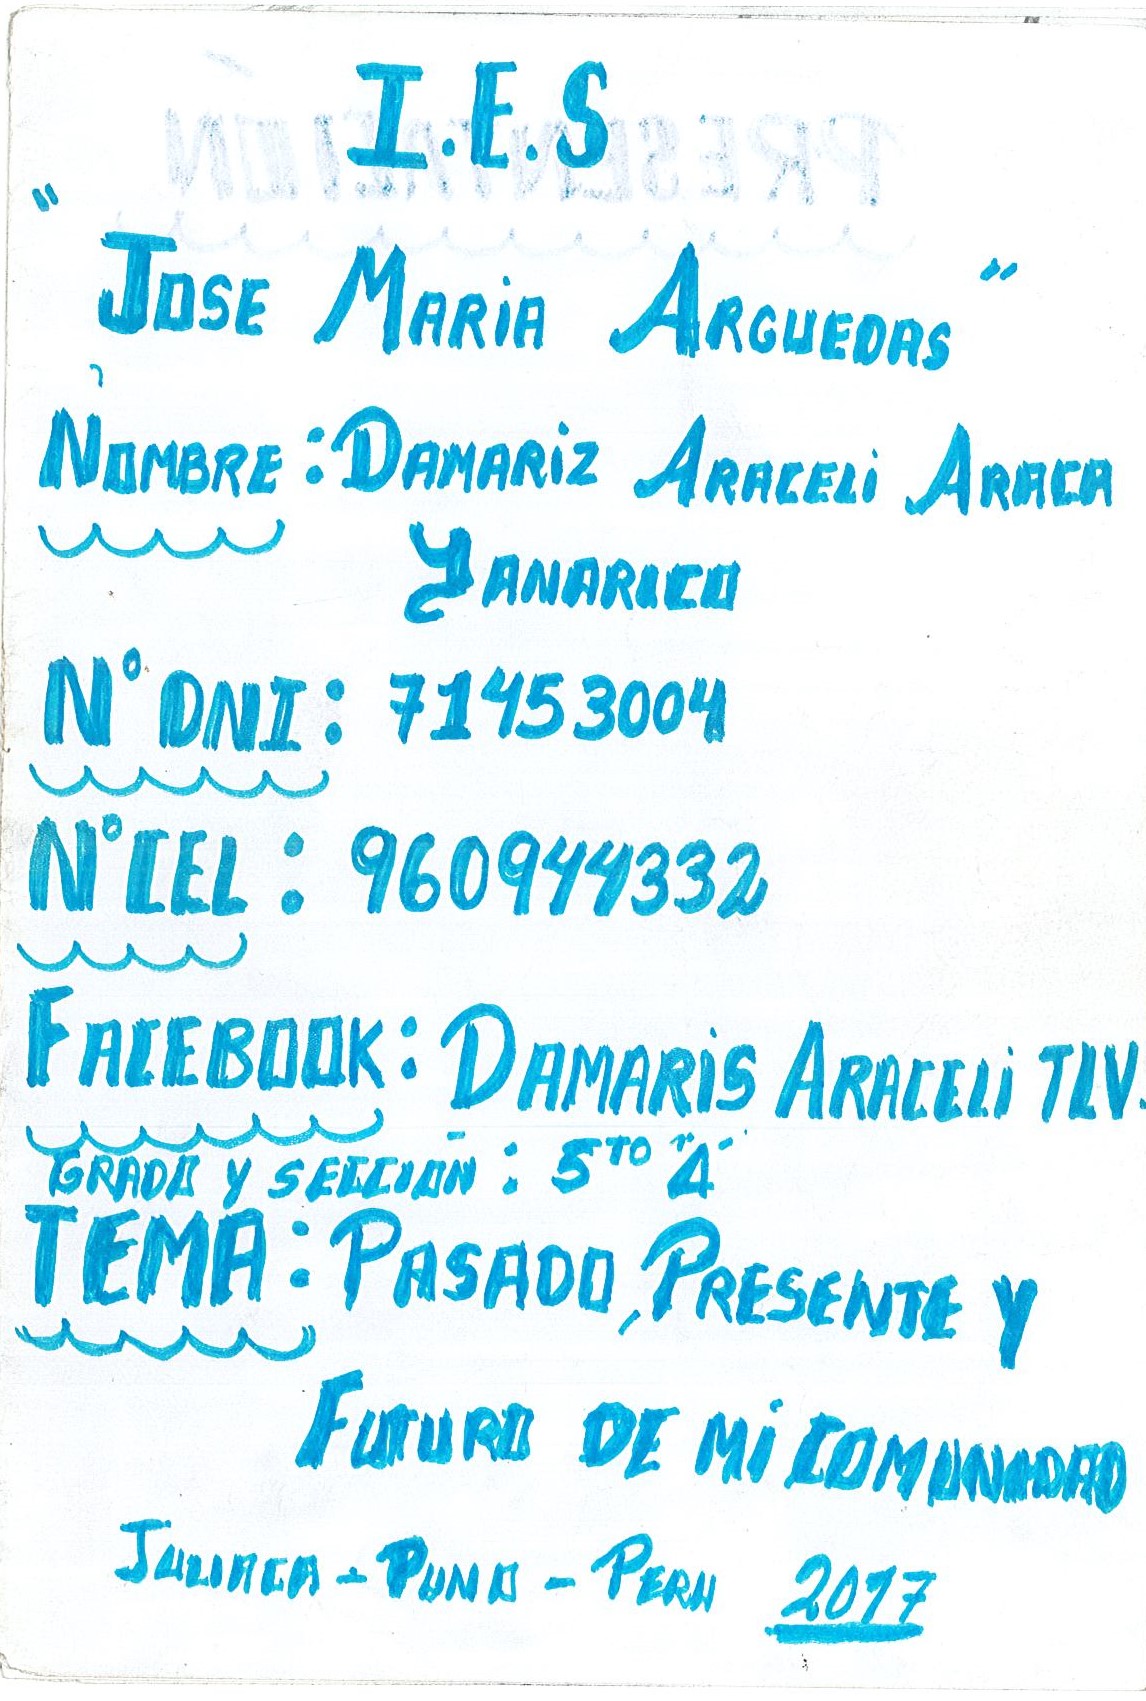 I.E.S
" JOSE MARiA ARGUEDAS "
NOMBRE : DAMARiZ ARACELi ARACA
YANARICO
N° DNI : 71453004
N° CEL : 960944332
FACEBOOK : DAMARiS ARACELi TLV.
GRADO Y SECCIÓN : 5TO "A"
TEMA : PASADO, PRESENTE Y
FUTURO DE Mi COMUNIDAD
JULIACA - PUNO - PERU 2017
PRESENTACIÓN